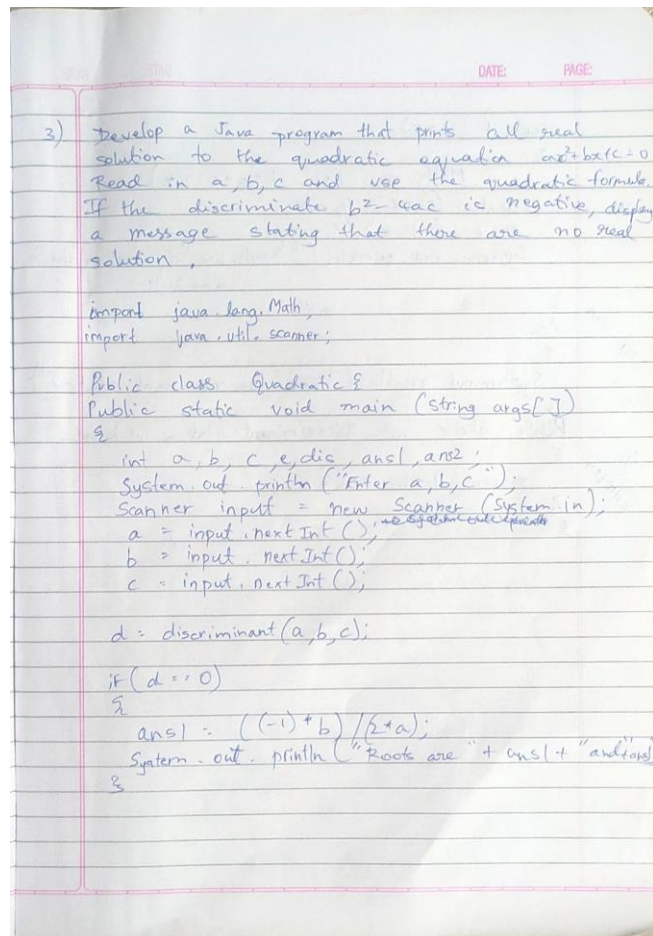 DATE: PAGE:
3) Develop a Java program that prints all real
solution to the quadratic equation ax²+bx+c=0
Read in a, b, c and use the quadratic formula.
If the discriminate b²-4ac is negative, display
a message stating that there are no real
solution,
import java.lang.Math;
import java.util.scanner;
Public class Quadratic {
Public static void main (string args[])
{
int a, b, c, e, dis, ans1, ans2;
System.out.println("Enter a,b,c");
Scanner input = new Scanner (System.in);
a = input.nextInt();
b = input.nextInt();
c = input.nextInt();
d = discriminant(a,b,c);
if(d==0)
{
ans1 = ((-1)*b)/(2*a);
Syatem.out.println("Roots are "+ans1+"and+ans1
}